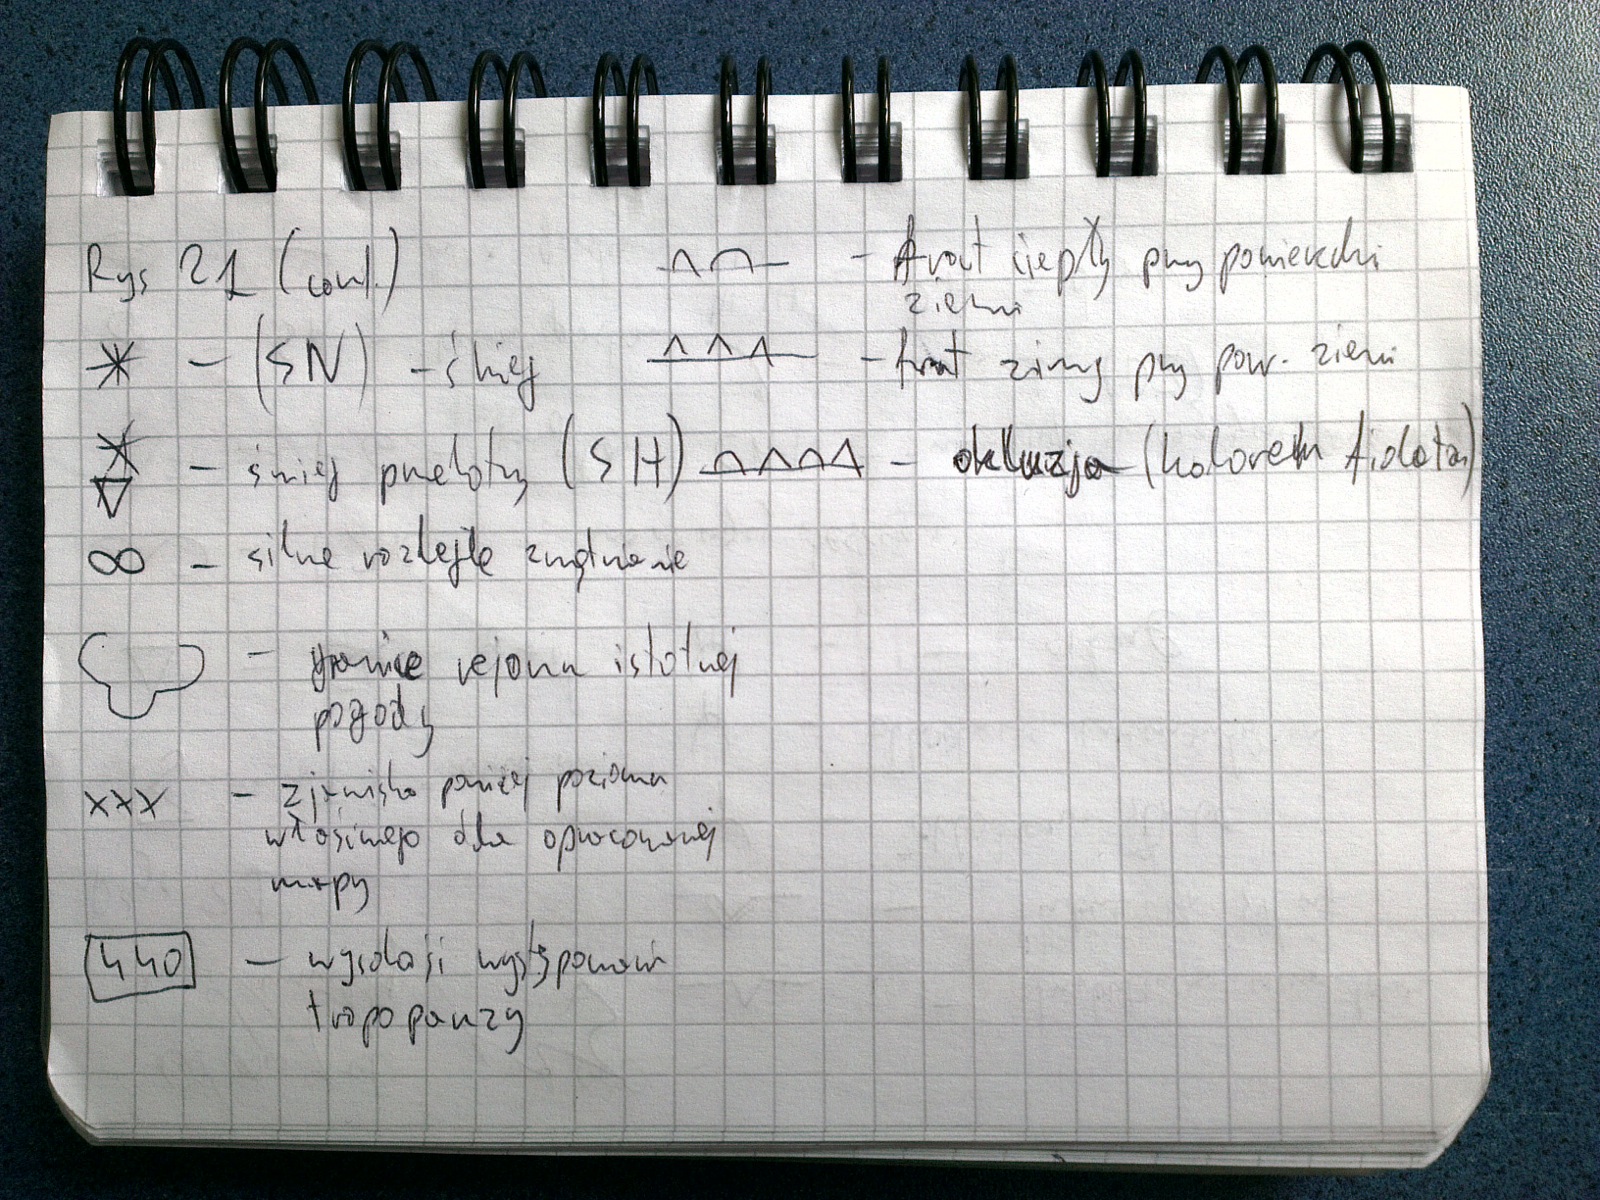 Rys 21 (cont.)
(SN) - śnieg
śnieg przelotny (SH)
∞ - silne rozległe zmętnienie
- granice rejonu istotnej
pogody
xxx - zjawisko poniżej poziomu
właściwego dla opracowanej
mapy
440 - wysokości występowania
tropopauzy
- front ciepły przy powierzchni
ziemi
- front zimny przy pow. ziemi
- okluzja (kolorem